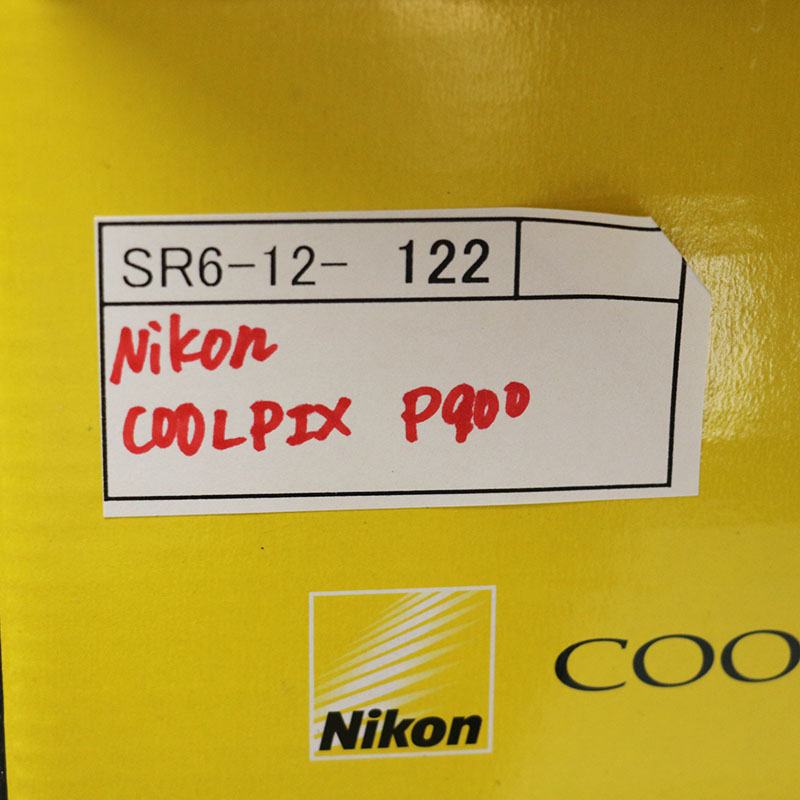 SR6-12- 122
Nikon
COOLPIX P900
Nikon
COO